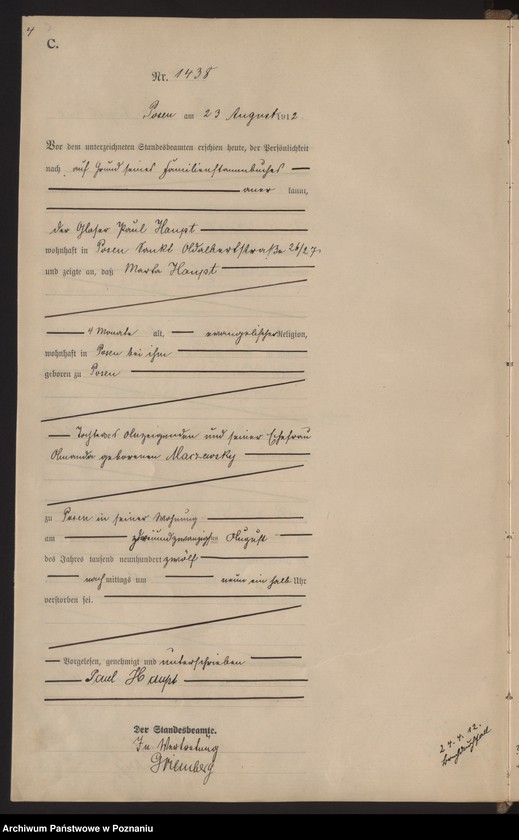 4
C.
Nr. 1438
Posen am 23 August 1912.
Vor dem unterzeichneten Standesbeamten erschien heute, der Persönlichkeit
nach auf Grund seines Familienstammbuches
aner kannt,
der Glaser Paul Haupt
wohnhaft in Posen Sankt Adalbertstraße 26/27
und zeigte an, daß Marta Haupt
4 Monate alt, evangelischer Religion,
wohnhaft in Posen bei ihm
geboren zu Posen
Tochter des Anzeigenden und seiner Ehefrau
Amanda geborenen
zu Posen in seiner Wohnung
am dreiundzwanzigsten August
des Jahres tausend neunhundert zwölf
nach mittags um neun ein halb Uhr
verstorben sei.
Vorgelesen, genehmigt und unterschrieben
Paul Haupt
Der Standesbeamte.
In Vertretung
Archiwum Państwowe w Poznaniu